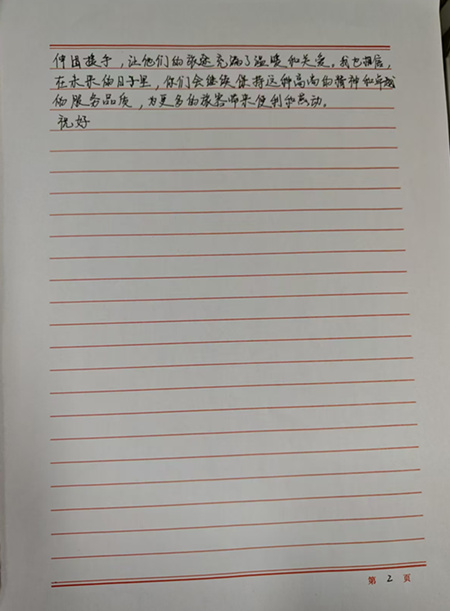 伸出援手，让他们的旅途充满了温暖和关爱。我也相信，
在未来的日子里，你们会继续保持这种高尚的精神和卓越
的服务品质，为更多的旅客带来便利和感动。
祝好
第 2 页